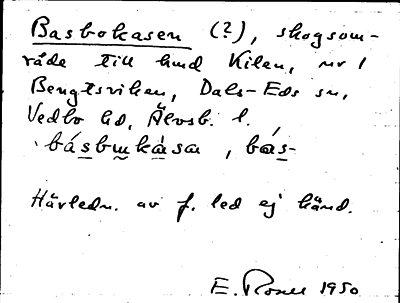 Basbokasen (?), skogsom-
råde till hmd Kilen, nr 1
Bengtsviken, Dals-Eds sn,
Vedbo hd, Älvsb. l.
básbukàsa, bás-
Härledn. av f. led ej känd.
E. Rosell 1950